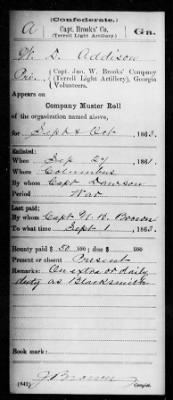 (Confederate.)
A Capt. Brooks' Co. Ga.
(Terrell Light Artillery).
W. D. Addison
Pri, Capt. Jno. W. Brooks' Company
(Terrell Light Artillery), Georgia
Volunteers.
Appears on
Company Muster Roll
of the organization named above,
for Sept & Oct, 1863.
Enlisted:
When Sep 27, 1861.
Where Columbus
By whom Capt Dawson
Period War
Last paid:
By whom Capt
To what time Sept 1, 1863.
Bounty paid $ 50 /100; due $ /100
Present or absent Present
Remarks: On extra or daily
duty as Blacksmith
Book mark:
(642) Copyist.